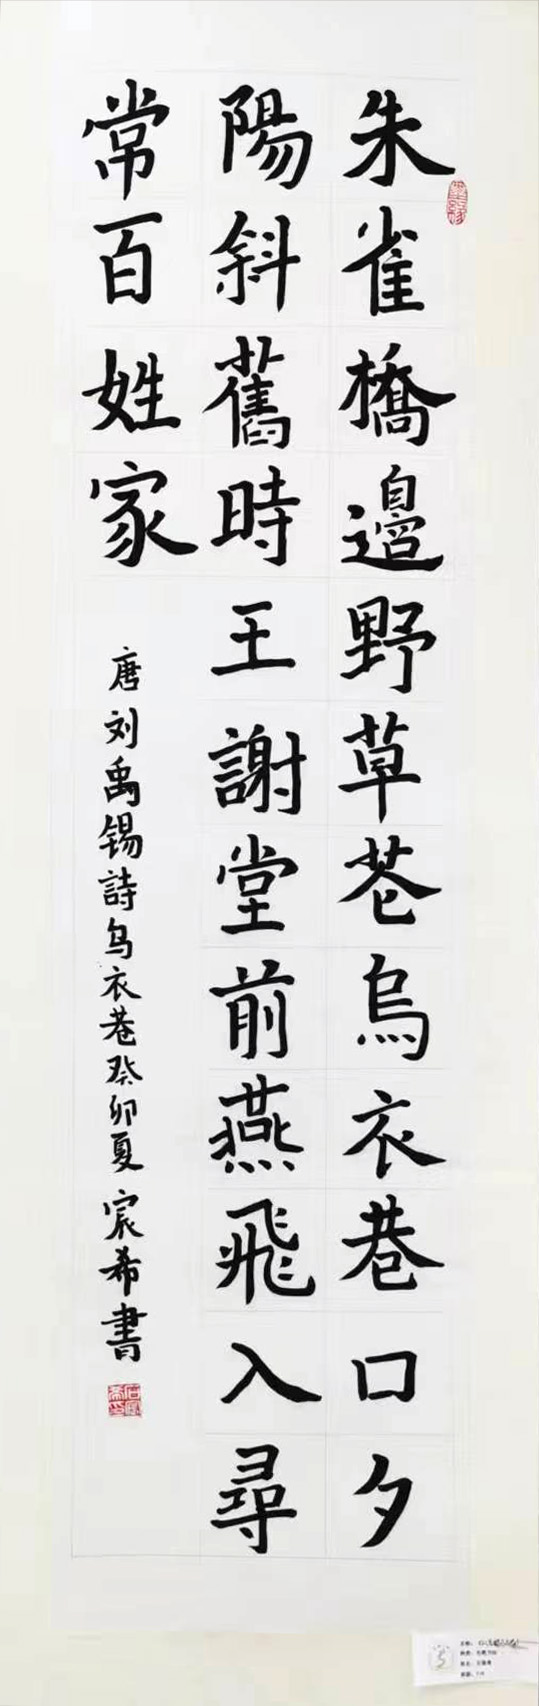 朱雀橋邊野草苍烏衣巷口夕
陽斜舊時王謝堂前燕飛入尋
常百姓家
唐刘禹锡詩乌衣巷癸卯夏宸希書